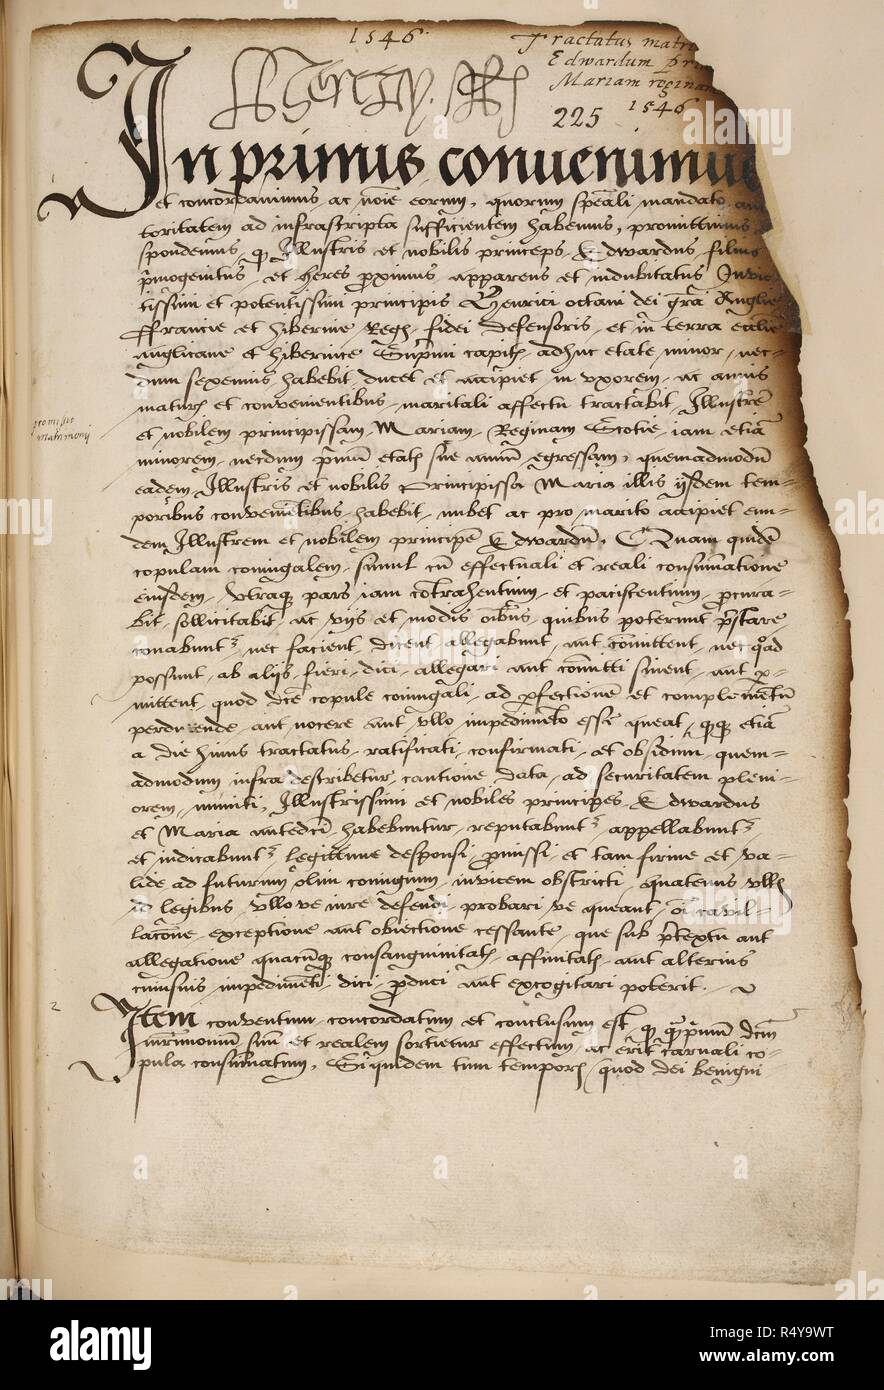 1546
Tractatus matri
Edwardum pri
Mariam reginam
1546
225
Henry R
In primis convenimus
et concordavimus, ac noie eorum, quorum speali mandato au
toritatem ad infrascripta sufficientem habemus, promittimus
spondemus, q Illustris et nobilis princeps Edwardus filius
pmogenitus, et heres proximus apparens et indubitatus Invic
tissimi et potentissimi principis Henrici octavi dei gra Anglie
ffrancie et hibernie Regis fidei defensoris, et in terra ecclie
anglicane et hibernice Supremi capitis, adhuc etate minor, nec=
dum sexennis, habebit, ducet et accipiet in uxorem, ac annis
maturis et convenientibus, maritali affectu tractabit, Illustre
promissio
matrimonij
et nobilem principissam Mariam Reginam Scotie, iam etia
minorem, necdum primu etatis sue annu egressam, quemadmodu
eadem Illustris et nobilis Principissa Maria illis ijsdem tem=
poribus convenietibus, habebit, nubet ac pro marito accipiet eun=
dem Illustrem et nobilem principe Edwardu, Quam quide
copulam coniugalem, simul cu effectuali et reali consumatione
eiusdem, utraq pars iam cotrahentium, et paciscentium, procura=
bit, sollicitabit, ac vijs et modis oibus, quibus poterunt prestare
conabunt, nec facient, dicent, allegabunt, aut comittent, nec quod
possunt, ab alijs, fieri, dici, allegari aut comitti sinent, aut p=
mittent, quod dce copule coniugali, ad perfectione et complemetu
perducende, aut nocere aut ullo impedimeto esse queat, etia
a die huius tractatus, ratificati, confirmati, et obsidum, quem=
admodum infra describetur, cautione data, ad securitatem pleni=
orem, muniti, Illustrissimi et nobiles principes Edwardus
et Maria antedci, habebuntur, reputabunt, appellabunt,
et indicabunt legittime desponsi, promissi, et tam firme et va=
lide ad futurum olim coniugium, invicem obstricti, quatenus ullis
id legibus, ullo ve iure defendi, probari, ve queant, oi cavil=
lacone, exceptione aut obiectione cessante, que sub pretextu aut
allegatione quacunq consanguinitatis, affinitatis, aut alterius
cuiusuis impedimeti, dici, produci aut excogitari poterit.
2
Item conventum, concordatum et conclusum est, q dcm
matrimonium suu et realem sortietur effectum, ac erit carnali co=
pula consumatum, Siquidem tum temporis, quod dei benigni
alamy
Image ID: R4Y9WT
www.alamy.com